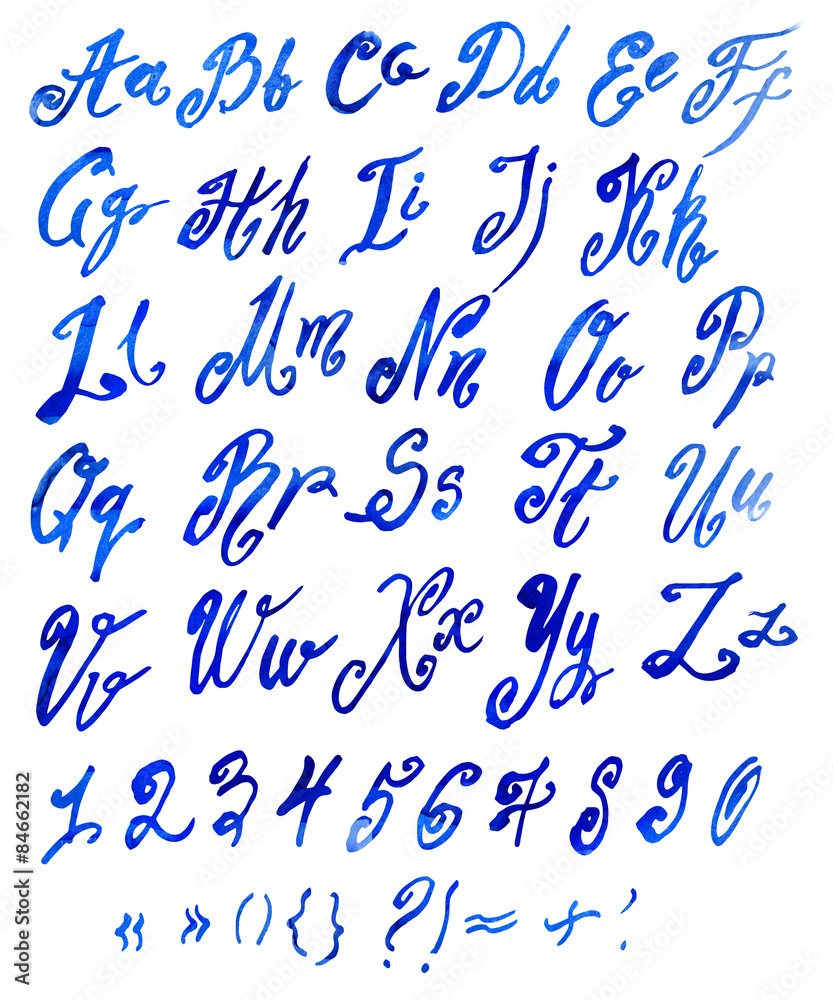 Aa Bb Cc Dd Ee Ff
Gg Hh Ii Jj Kk
Ll Mm Nn Oo Pp
Qq Rr Ss Tt Uu
Vv Ww Xx Yy Zz
1 2 3 4 5 6 7 8 9 0
« » () {} ? ! ≈ + '
Adobe Stock | #84662182